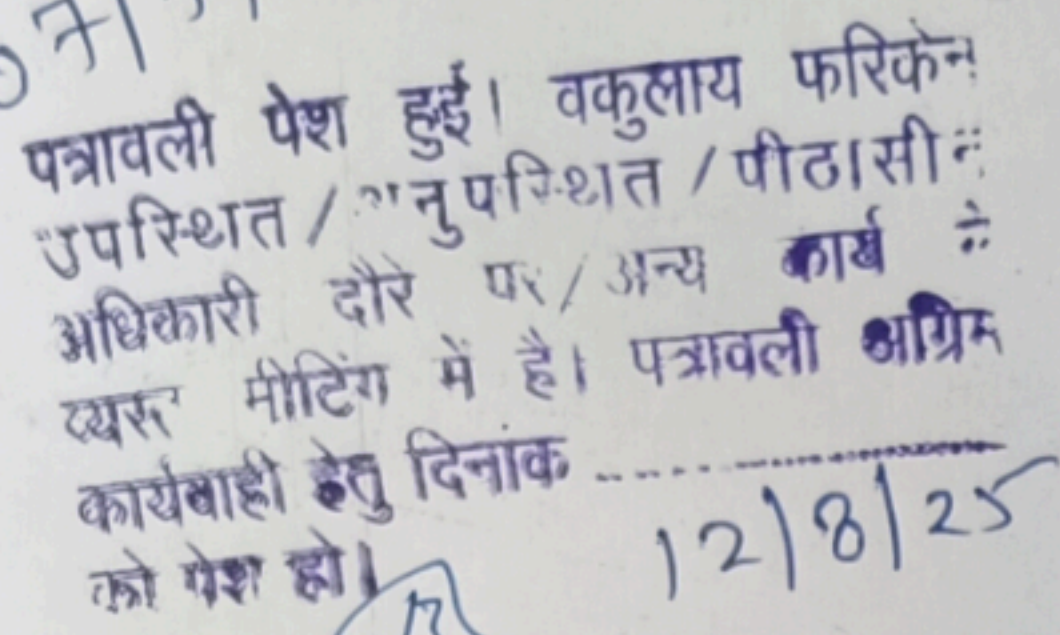 पत्रावली पेश हुई। वकुलाय फरिकेन
उपस्थित / अनुपस्थित / पीठासीन
अधिकारी दौरे पर / अन्य कार्य में
व्यस्त मीटिंग में है। पत्रावली अग्रिम
कार्यवाही हेतु दिनांक ....................
12/8/25
को पेश हो।